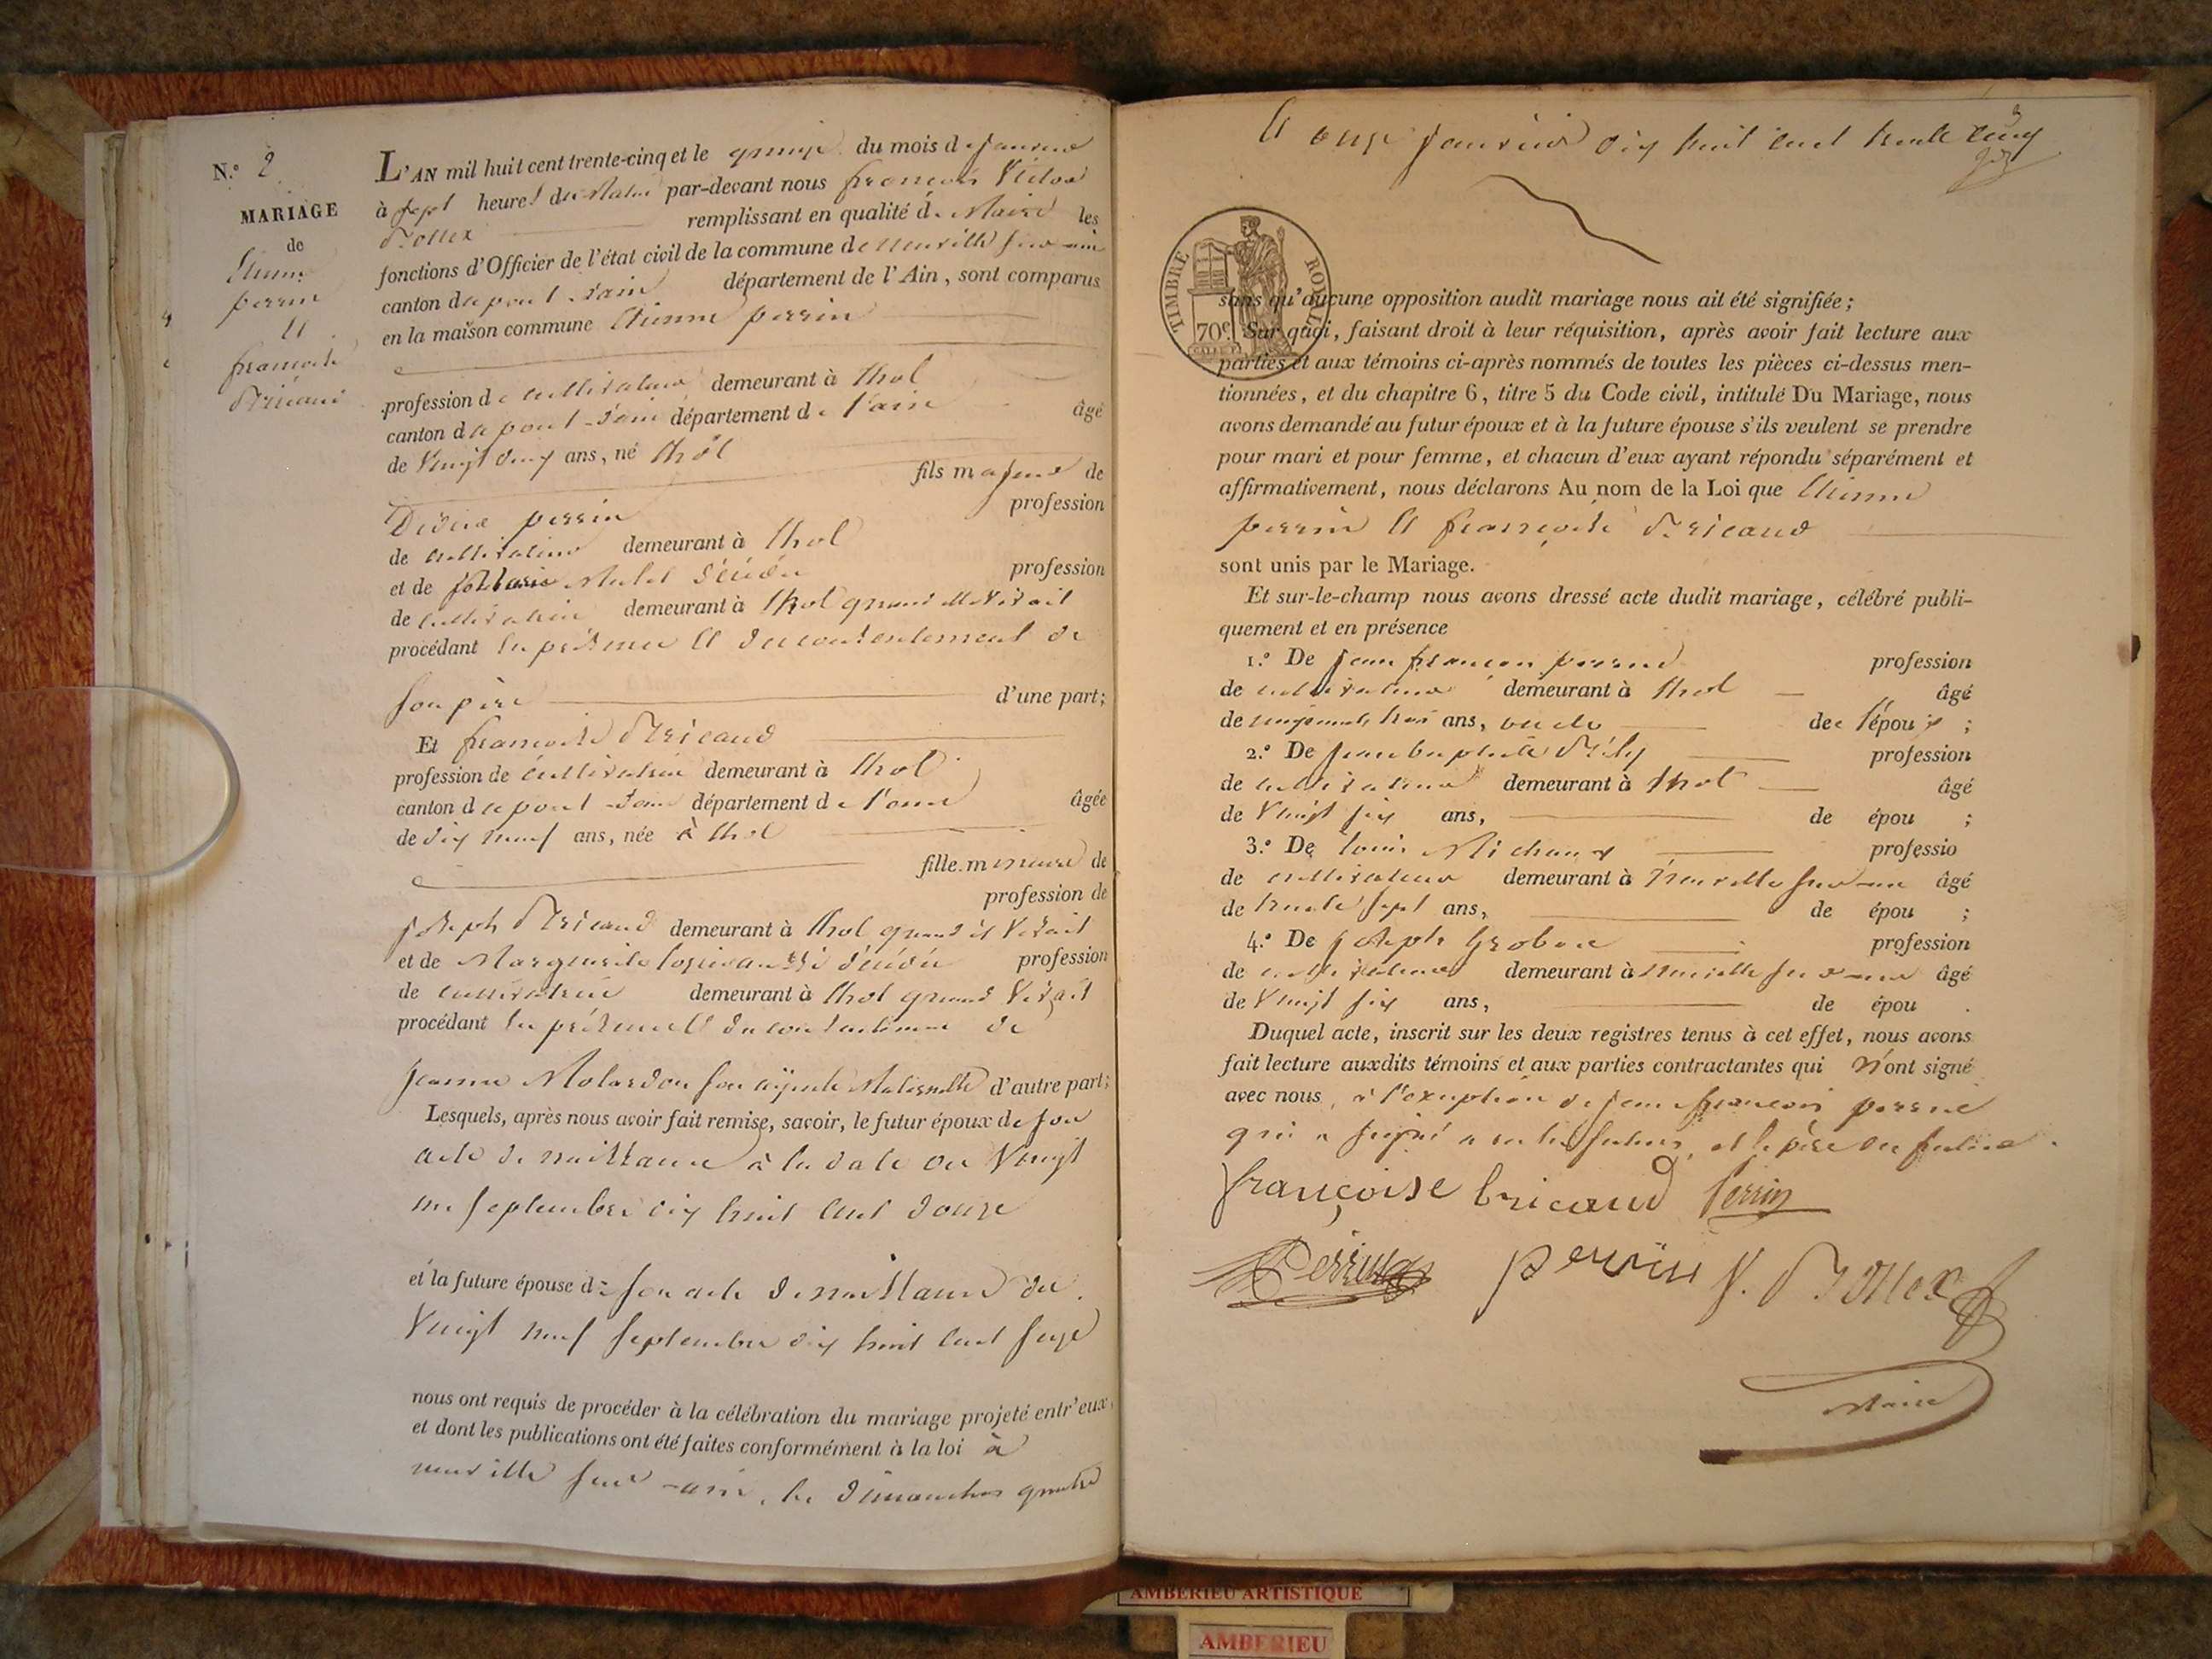 N.º 2
MARIAGE
de
Etienne
perrin
Et
francoise
Bricaud
L'AN mil huit cent trente-cinq et le quinze du mois de janvier
à sept heures du Matin par-devant nous francois Victor
Brollex remplissant en qualité de Maire les
fonctions d'Officier de l'état civil de la commune de neuville sur ain
canton de pont d'ain département de l'Ain, sont comparus
en la maison commune Etienne perrin
profession de cultivateur demeurant à thol
canton de pont d'ain département de l'ain âgé
de Vingt deux ans, né thol
fils majeur de
profession
perrin
de cultivateur demeurant à thol
et de Marie décédée profession
de cultivatrice demeurant à thol quand elle vivait
procédant en présence et du consentement de
son père d'une part;
Et francoise Bricaud
profession de cultivatrice demeurant à thol
canton de pont d'ain département de l'ain âgée
de dix neuf ans, née à thol
fille mineure de
profession de
joseph Bricaud demeurant à thol quand il vivait
et de Marguerite aussi décédée profession
de cultivatrice demeurant à thol quand vivait
procédant en présence et du consentement de
jeanne Molardon son ayeule Maternelle d'autre part;
Lesquels, après nous avoir fait remise, savoir, le futur époux de son
acte de naissance à la date du Vingt
un septembre dix huit cent douze
et la future épouse de son acte de naissance du
Vingt neuf septembre dix huit cent seize
nous ont requis de procéder à la célébration du mariage projeté entr'eux,
et dont les publications ont été faites conformément à la loi à
neuville sur ain, les dimanches quatre
Et onze janvier dix huit cent trente cinq
TIMBRE ROYAL
70c.
sans qu'aucune opposition audit mariage nous ait été signifiée;
Sur quoi, faisant droit à leur réquisition, après avoir fait lecture aux
parties et aux témoins ci-après nommés de toutes les pièces ci-dessus men-
tionnées, et du chapitre 6, titre 5 du Code civil, intitulé Du Mariage, nous
avons demandé au futur époux et à la future épouse s'ils veulent se prendre
pour mari et pour femme, et chacun d'eux ayant répondu séparément et
affirmativement, nous déclarons Au nom de la Loi que Etienne
perrin et françoise Bricaud
sont unis par le Mariage.
Et sur-le-champ nous avons dressé acte dudit mariage, célébré publi-
quement et en présence
1.º De jean françois perrin profession
de cultivateur demeurant à thol âgé
de cinquante trois ans, oncle de l'époux;
2.º De jean baptiste profession
de cultivateur demeurant à thol âgé
de Vingt six ans, de épou ;
3.º De louis Michaux professio
de cultivateur demeurant à neuville sur ain âgé
de trente sept ans, de épou ;
4.º De joseph Groboz profession
de cultivateur demeurant à neuville sur ain âgé
de Vingt six ans, de épou .
Duquel acte, inscrit sur les deux registres tenus à cet effet, nous avons
fait lecture auxdits témoins et aux parties contractantes qui n'ont signé
avec nous, à l'exception de jean françois perrin
qui a signé avec les futurs, et le père du futur.
françoise bricaud Perrin
Perrin perrin V. Brollex
Maire
AMBERIEU ARTISTIQUE
AMBERIEU